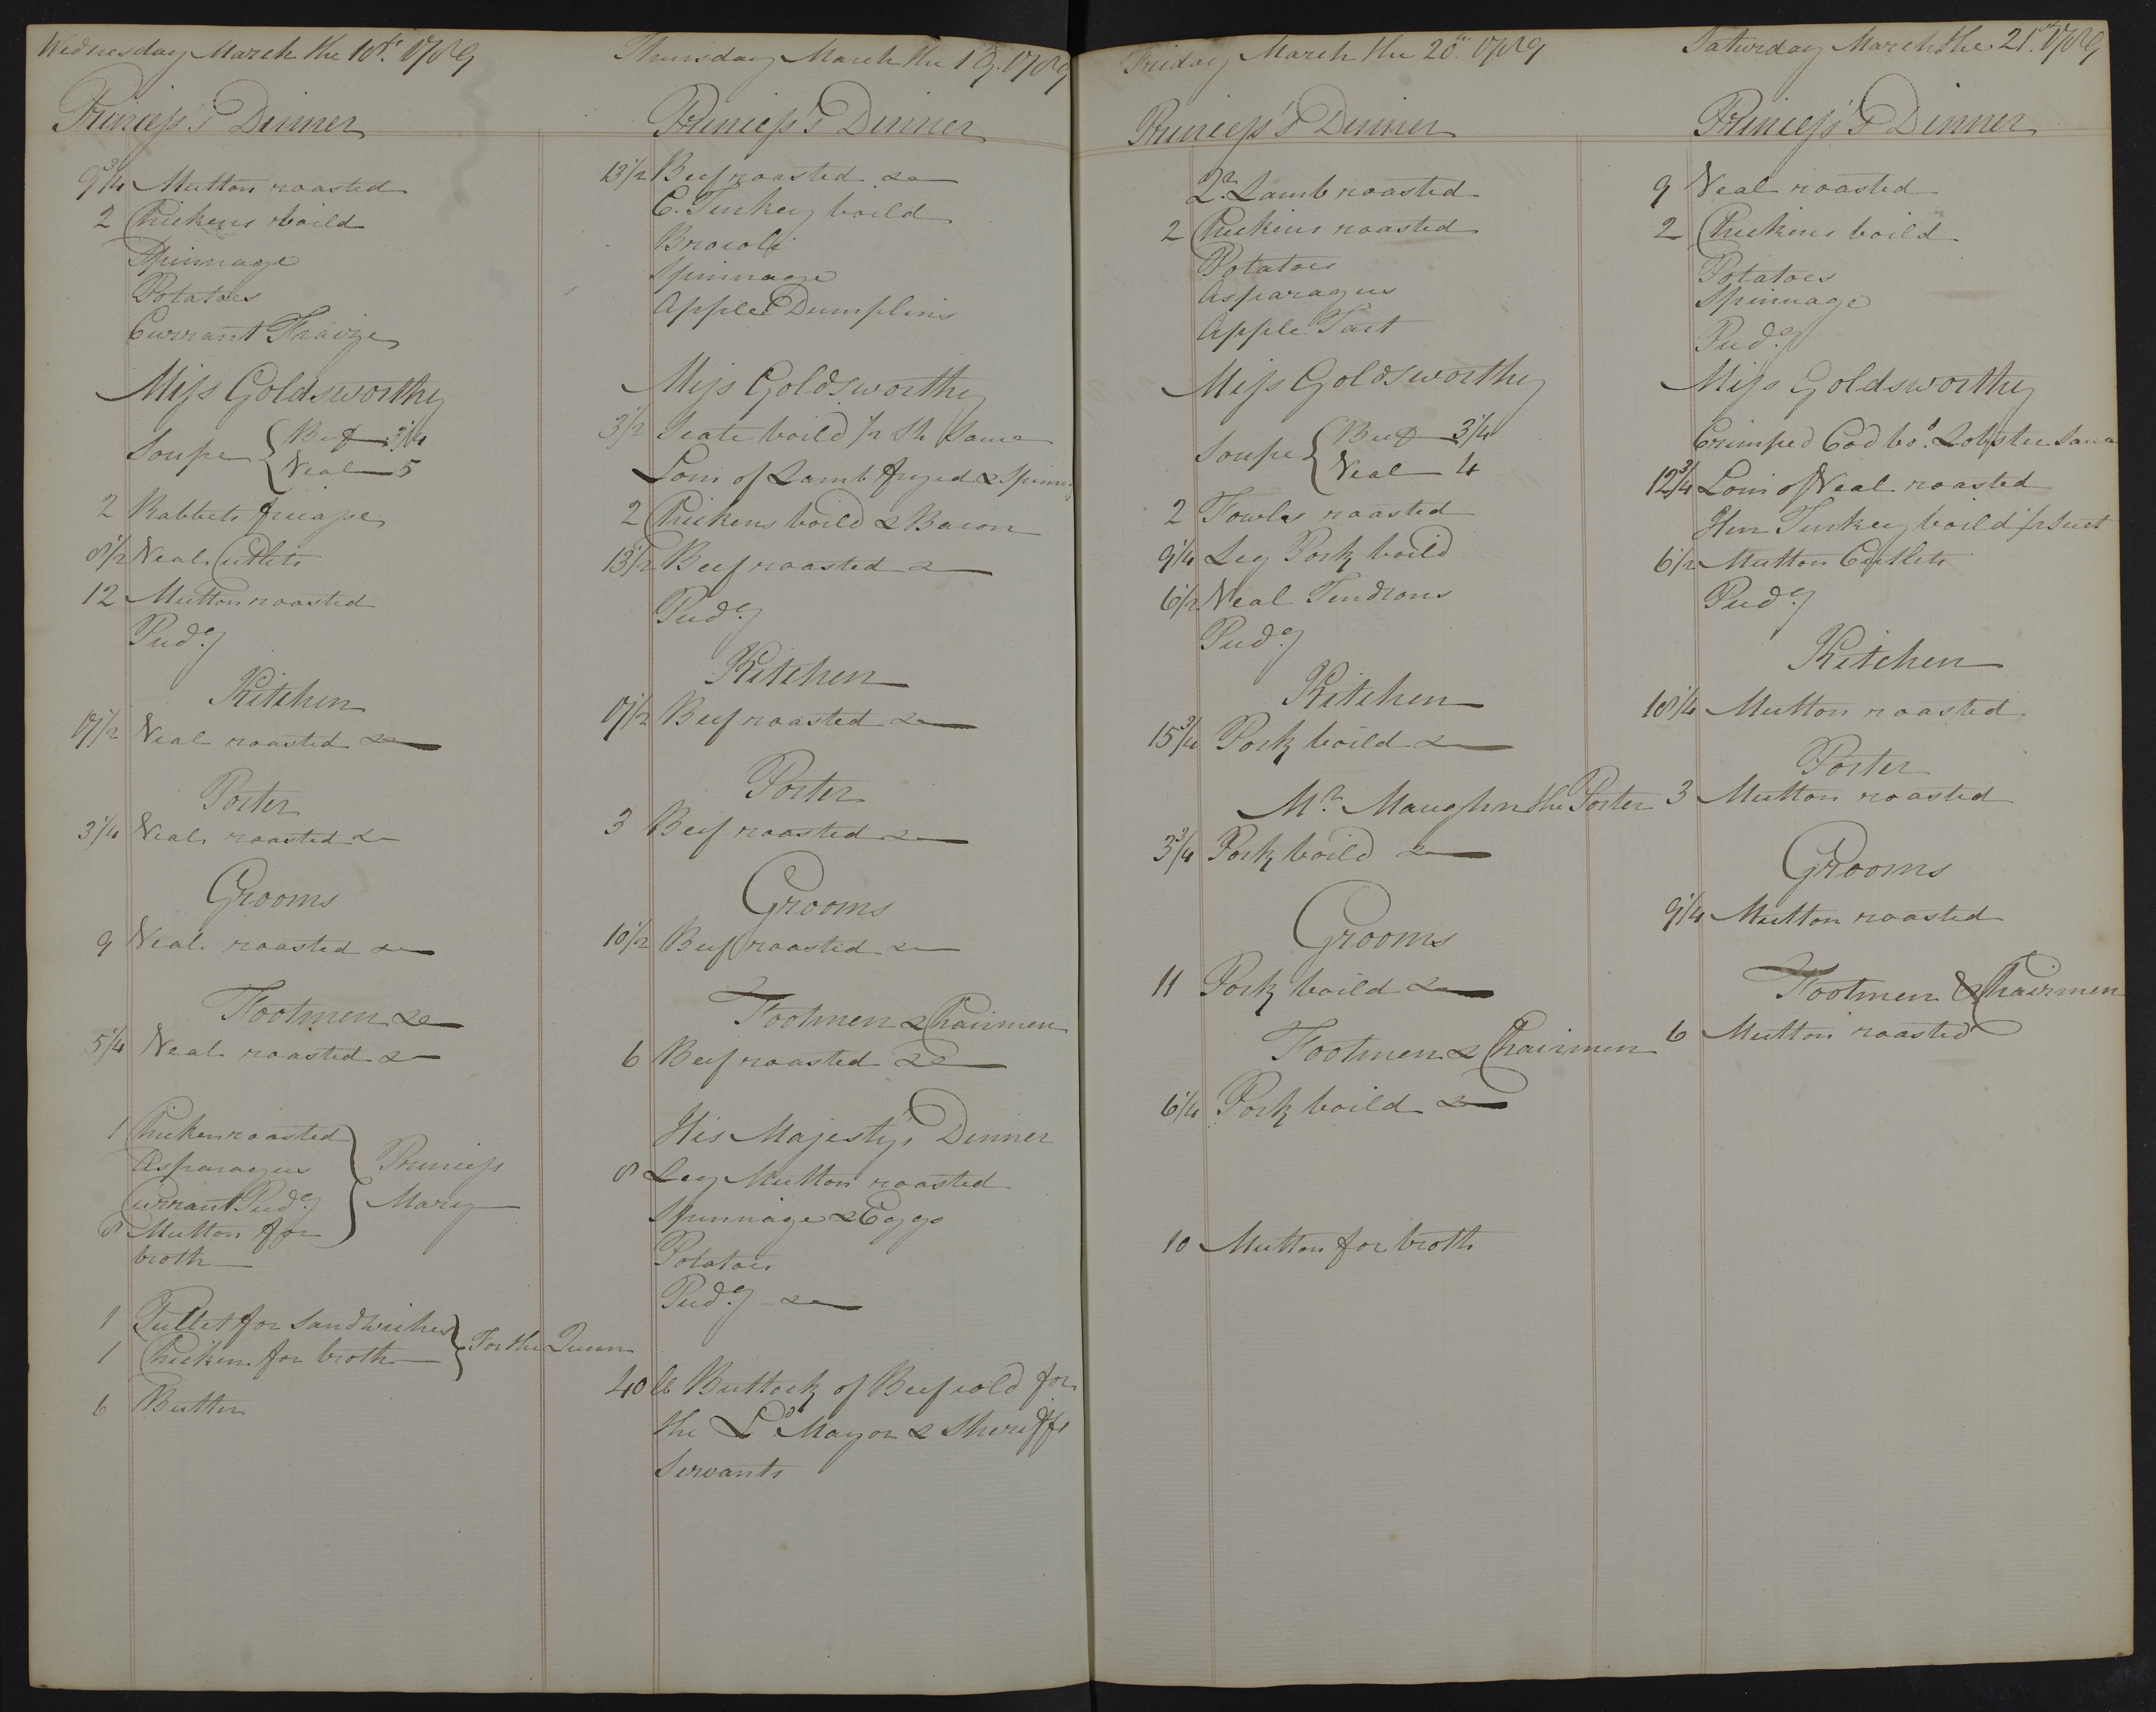 Wednesday March the 18th. 1789
Princess's Dinner
9 3/4 Mutton roasted
2 Chickens boild
Spinnage
Potatoes
Currant Fraize
Miss Goldsworthy
Soupe { Beef 3 1/4
Veal 5
2 Rabbets
8 1/2 Veal Cutlets
12 Mutton roasted
Pudg
Kitchen
17 1/2 Veal roasted &
Porter
3 1/4 Veal roasted &
Grooms
9 Veal roasted &
Footmen &c
5 1/4 Veal roasted &
1 Chicken roasted
Asparagus
Currant Pudg
8 Mutton for
broth
} Princess
Mary
1 Pullet for Sandwiches
1 Chicken for broth
} For the Queen
6 Butter
Thursday March the 19. 1789
Princess's Dinner
13 1/2 Beef roasted &
C. Turkey boild
Brocoli
Spinnage
Apple Dumplins
Miss Goldsworthy
3 1/2 Scate boild 1/2 Sh Sauce
Loin of Lamb fryed & Spinng
2 Chickens boild & Bacon
13 1/2 Beef roasted &
Pudg
Kitchen
17 1/2 Beef roasted &
Porter
3 Beef roasted &
Grooms
10 1/2 Beef roasted &
Footmen & Chairmen
6 Beef roasted &
His Majesty's Dinner
8 Leg Mutton roasted
Spinnage & Eggs
Potatoes
Pudg &
40 lb Buttock of Beef cold for
the Ld. Mayor & Sheriffs
Servants
Friday March the 20th. 1789
Princess's Dinner
2 Qr. Lamb roasted
2 Chickens roasted
Potatoes
Asparagus
Apple Tart
Miss Goldsworthy
Soupe { Beef 3 1/4
Veal 4
2 Fowls roasted
9 1/4 Leg Pork boild
6 1/2 Veal Tendrons
Pudg
Kitchen
15 3/4 Pork boild &
Mr. Maughn the Porter
3 3/4 Pork boild &
Grooms
11 Pork boild &
Footmen & Chairmen
6 1/4 Pork boild &
10 Mutton for broth
Saturday March the 21st. 1789
Princess's Dinner
9 Veal roasted
2 Chickens boild
Potatoes
Spinnage
Pudg
Miss Goldsworthy
Crimped Cod bod. Lobster Sauce
12 3/4 Loin of Veal roasted
Hen Turkey boild
6 1/2 Mutton Cutlets
Pudg
Kitchen
18 1/4 Mutton roasted
Porter
3 Mutton roasted
Grooms
9 1/4 Mutton roasted
Footmen & Chairmen
6 Mutton roasted